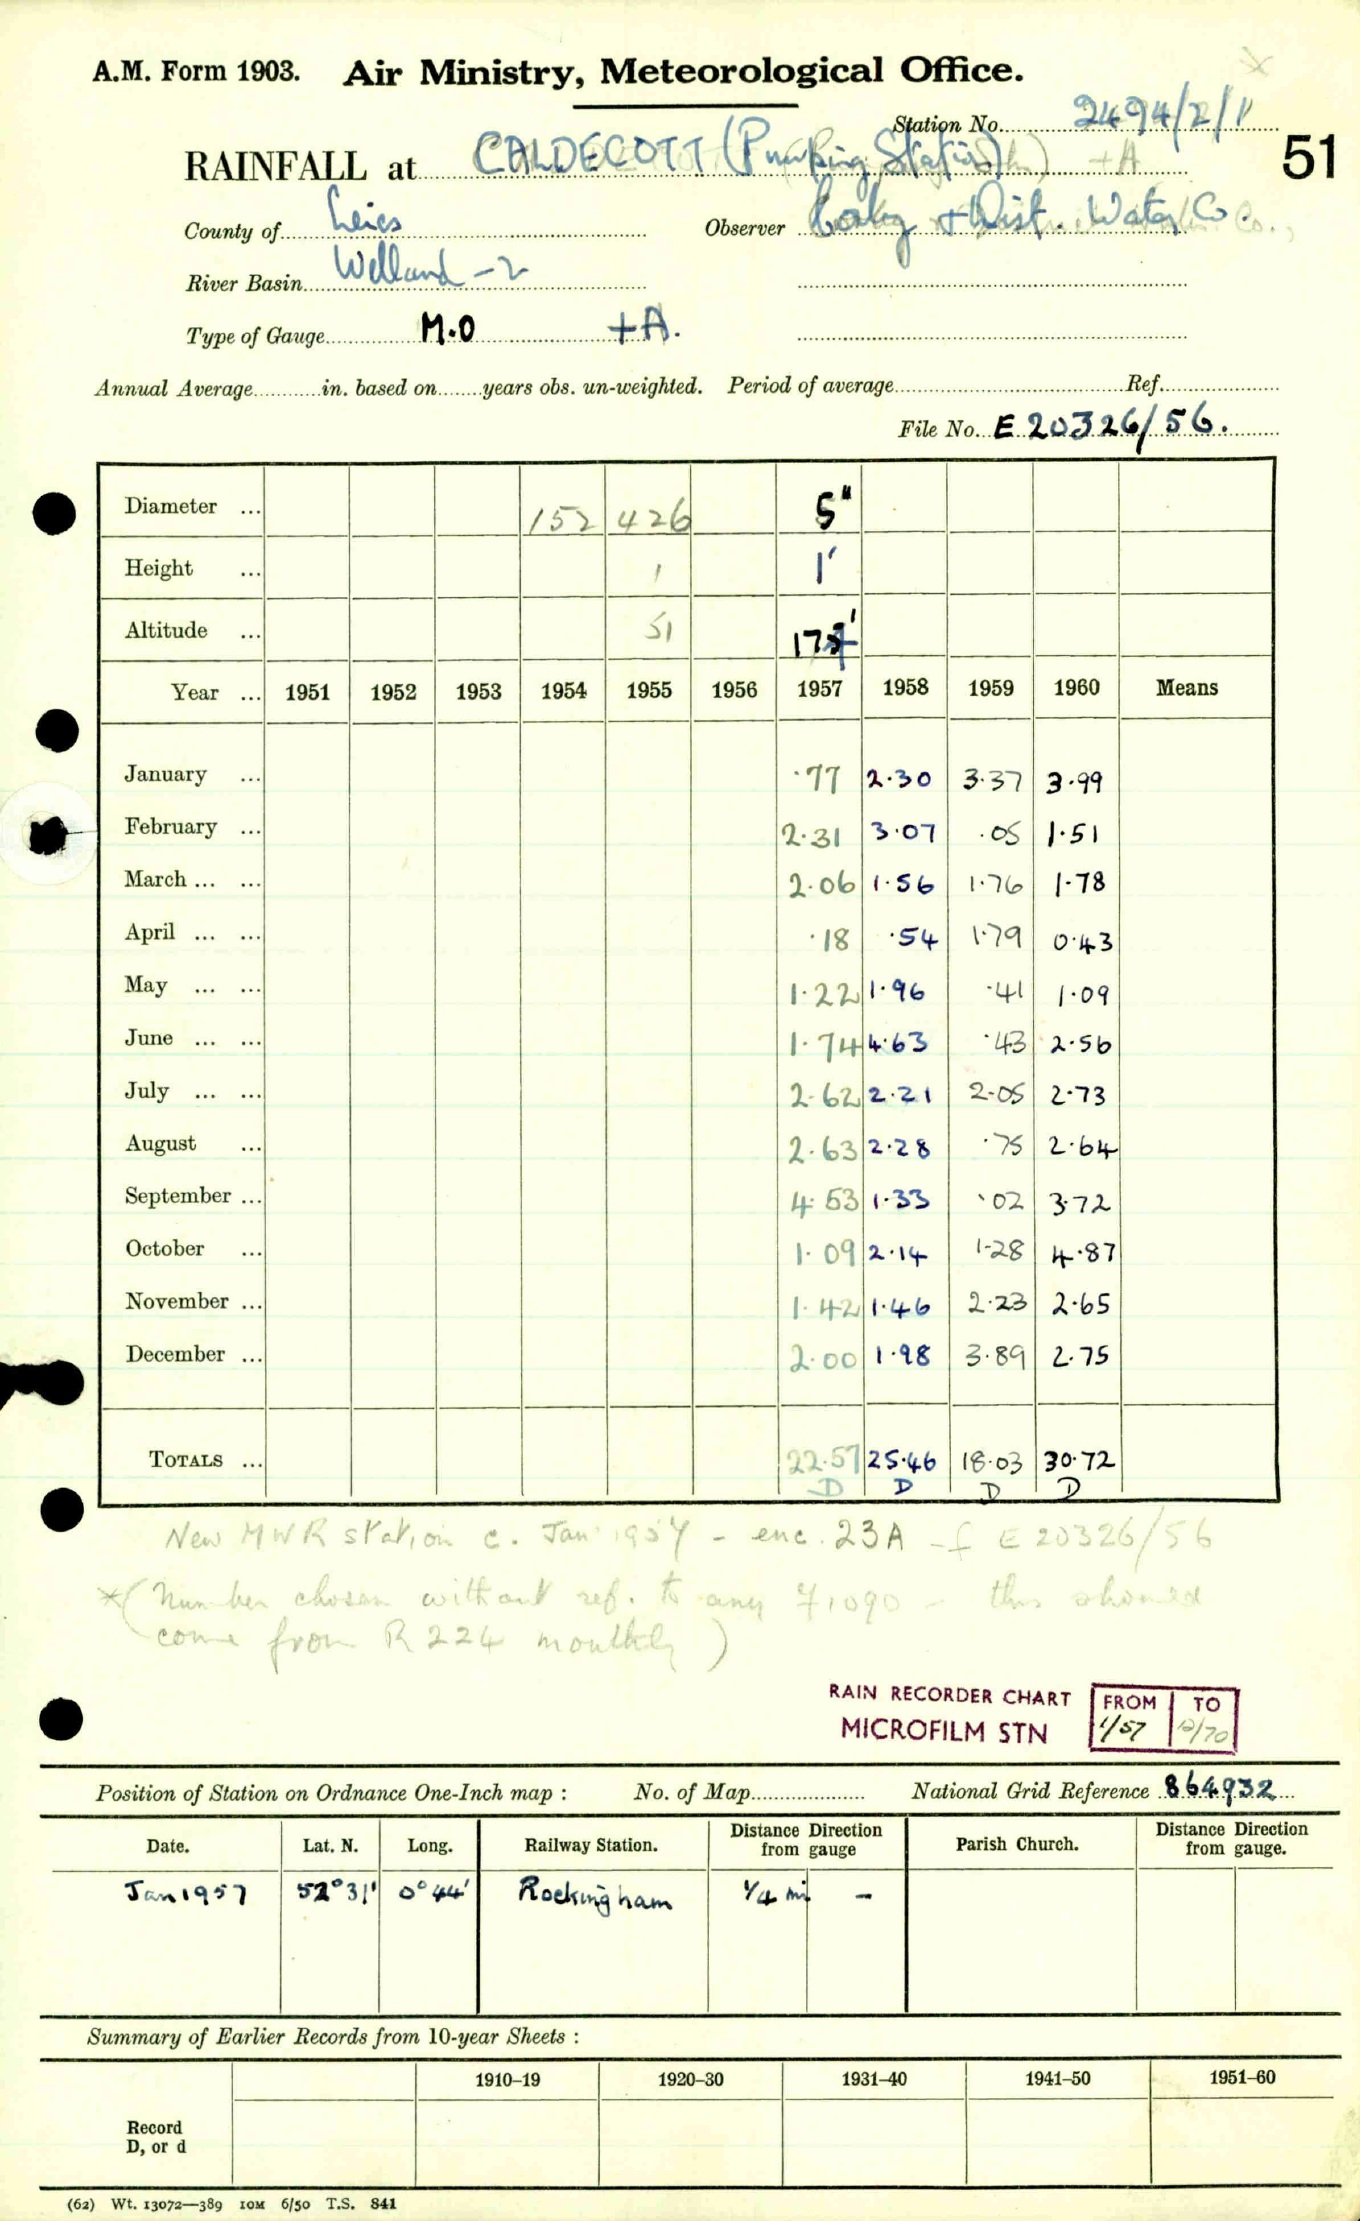 A.M. Form 1903. Air Ministry, Meteorological Office.
Station No. 2494/2/1
RAINFALL at CALDECOTT (Pumping Station) +A 51
County of Leics Observer Corby + Dist. Water Co.
River Basin Welland - 2
Type of Gauge M.O +A.
Annual Average in. based on years obs. un-weighted. Period of average Ref.
File No. E 20326/56.
Diameter ... 152 426 5"
Height ... 1 1'
Altitude ... 51
Year ... 1951 1952 1953 1954 1955 1956 1957 1958 1959 1960 Means
January ... ·77 2·30 3·37 3·99
February ... 2·31 3·07 ·05 1·51
March ... ... 2·06 1·56 1·76 1·78
April ... ... ·18 ·54 1·79 0·43
May ... ... 1·22 1·96 ·41 1·09
June ... ... 1·74 4·63 ·43 2·56
July ... ... 2·62 2·21 2·05 2·73
August ... 2·63 2·28 ·75 2·64
September ... 4·53 1·33 ·02 3·72
October ... 1·09 2·14 1·28 4·87
November ... 1·42 1·46 2·23 2·65
December ... 2·00 1·98 3·89 2·75
TOTALS ... 22·57 25·46 18·03 30·72
D D D D
New MWR station c. Jan 1957 - enc. 23A - f E 20326/56
*(Number chosen without ref. to any F1090 - this should
come from R224 monthly)
RAIN RECORDER CHART FROM TO
MICROFILM STN 1/57 12/70
Position of Station on Ordnance One-Inch map : No. of Map National Grid Reference 864932
Date. Lat. N. Long. Railway Station. Distance from gauge Direction Parish Church. Distance from gauge. Direction
Jan 1957 52°31' 0°44' Rockingham 1/4 mi -
Summary of Earlier Records from 10-year Sheets :
1910–19 1920–30 1931–40 1941–50 1951–60
Record
D, or d
(62) Wt. 13072—389 10M 6/50 T.S. 841